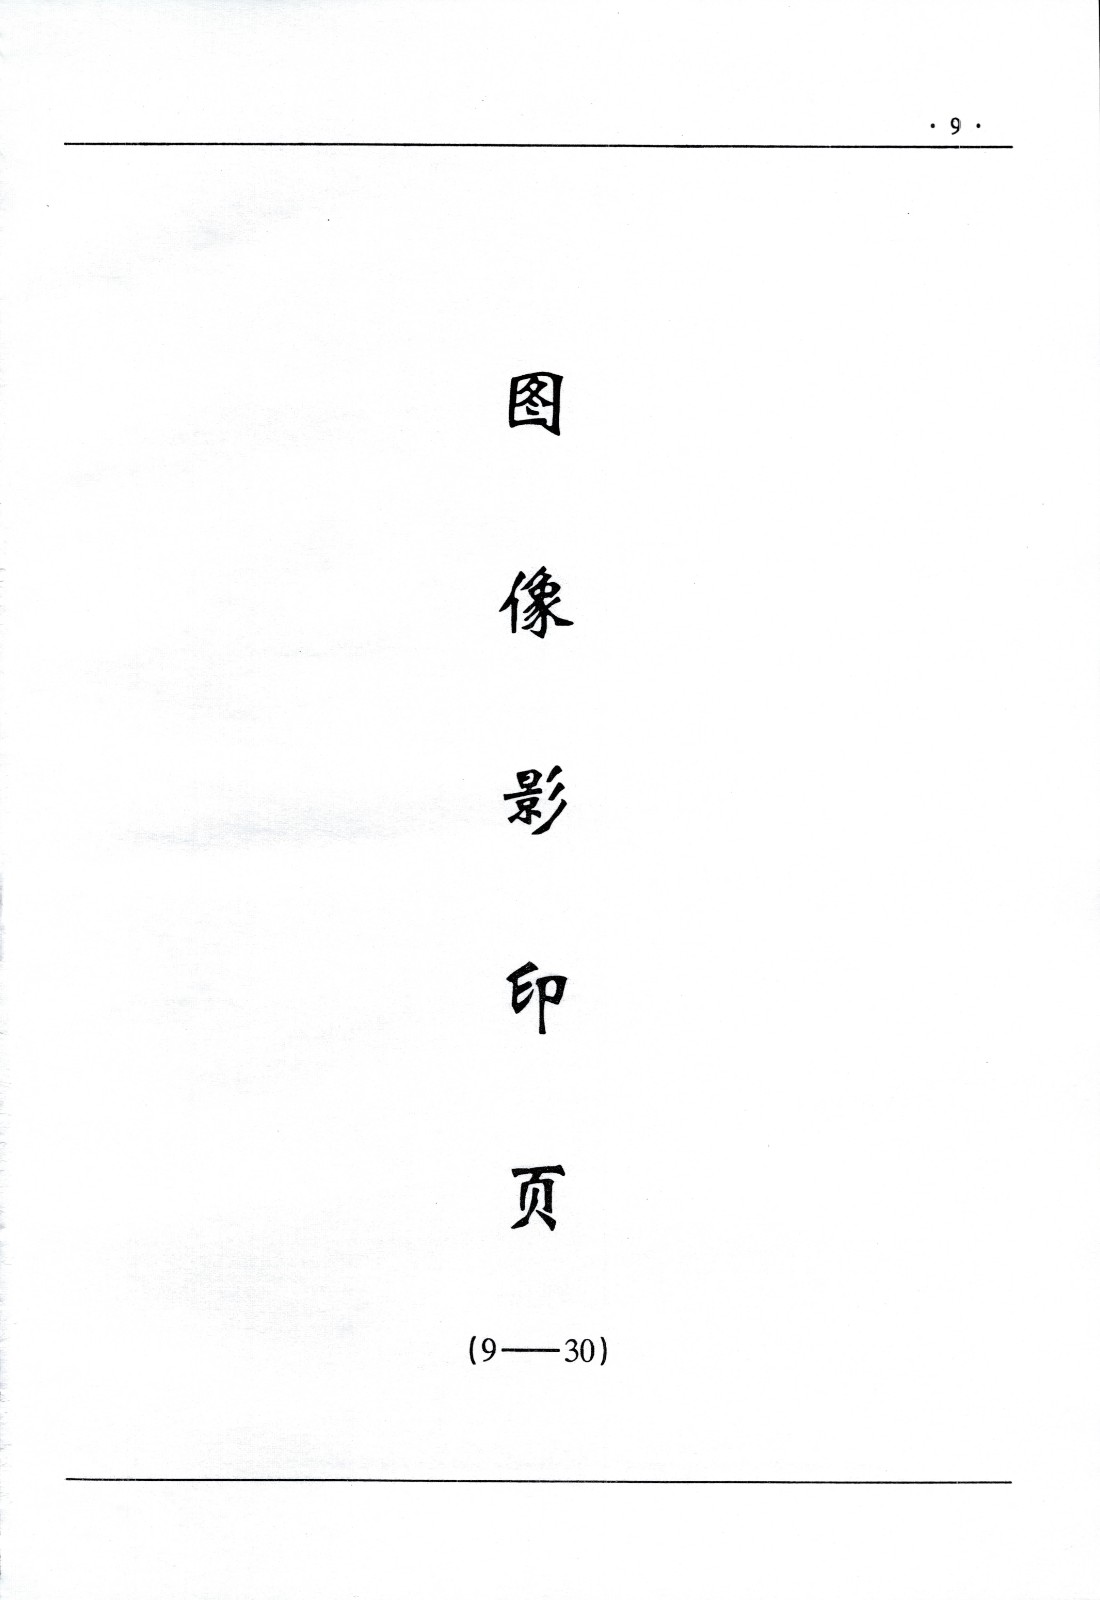 · 9 ·
图像影印页
(9——30)